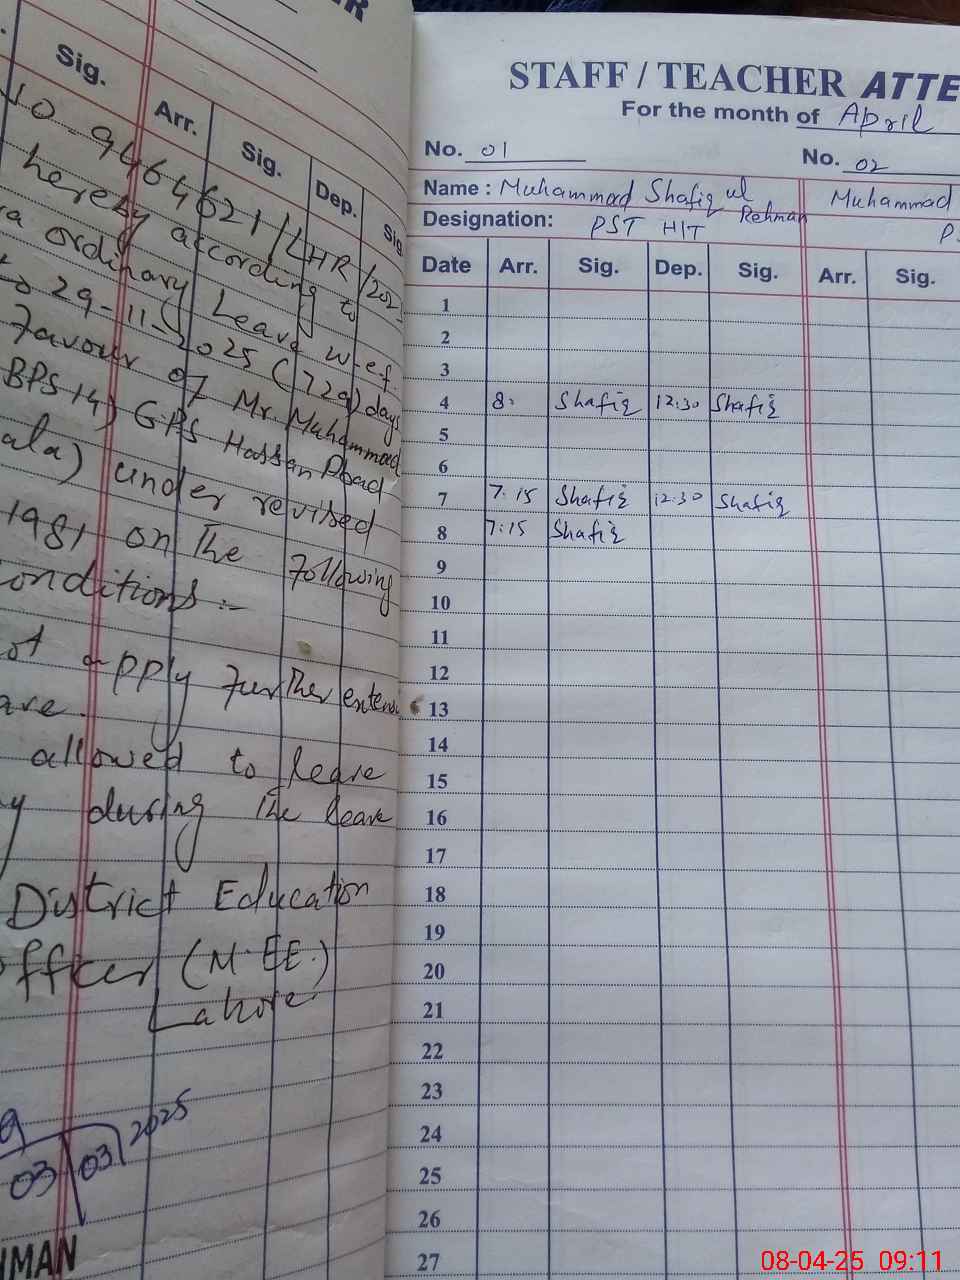 Sig.
Arr.
Sig.
Dep.
10-9464621/LHR/202
hereby according to
ordinary Leave w.ef.
to 29-11-2025 (729) days
Favour of Mr. Muhammad
BPS 14) GPS Hassan Abad
ala) under revised
1981 on The Following
onditions :-
ot apply Further extens
are
allowed to leave
y during the leave
District Education
officer (M.EE.)
Lahore
03/03/2025
MAN
STAFF / TEACHER ATTE
For the month of April
No. 01
No. 02
Name : Muhammad Shafiq ul Rehman
Muhammad
Designation: PST HIT
PS
Date Arr. Sig. Dep. Sig. Arr. Sig.
1
2
3
4 8: Shafiq 12:30 Shafiq
5
6
7 7:15 Shafiq 12:30 Shafiq
8 7:15 Shafiq
9
10
11
12
13
14
15
16
17
18
19
20
21
22
23
24
25
26
27
08-04-25 09:11